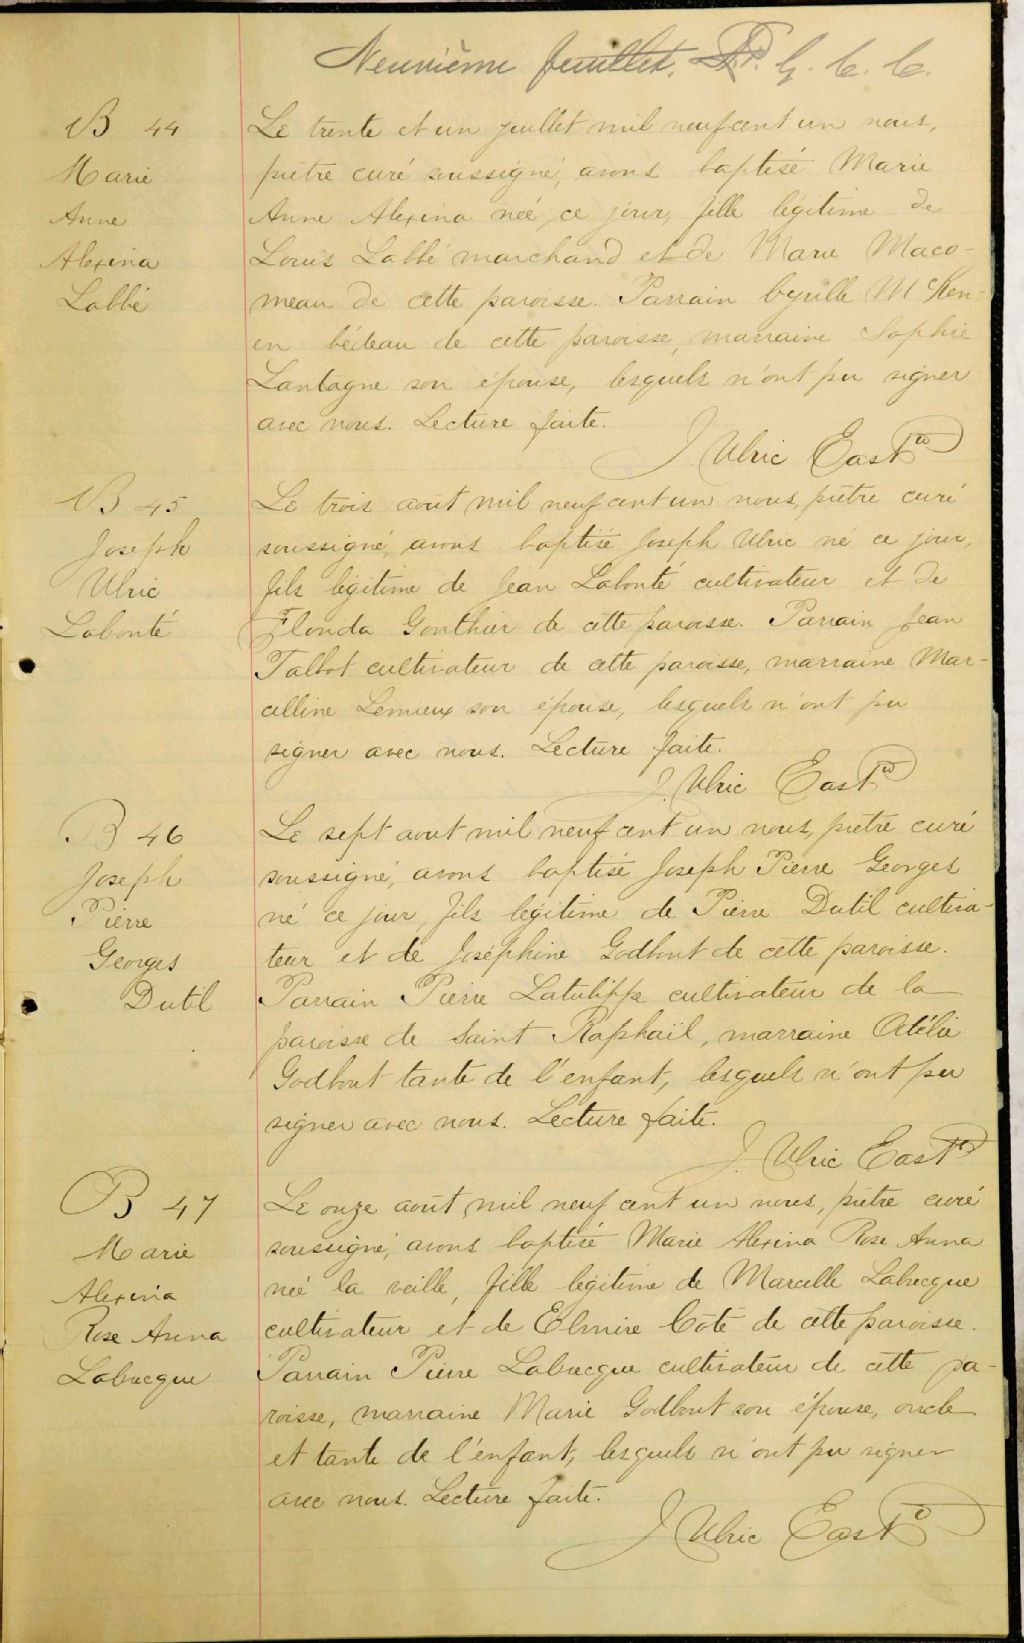 Neuvième feuillet. P. G. C. C.
B 44
Marie
Anne
Alexina
Labbé
Le trente et un juillet mil neuf cent un nous,
prêtre curé soussigné, avons baptisé Marie
Anne Alexina née ce jour, fille légitime de
Louis Labbé marchand et de Marie Maco-
meau de cette paroisse. Parrain Cyrille McKen-
en bédeau de cette paroisse, marraine Sophie
Lantagne son épouse, lesquels n'ont pu signer
avec nous. Lecture faite.
J Ulric East Ptre
B 45
Joseph
Ulric
Labonté
Le trois août mil neuf cent un nous, prêtre curé
soussigné, avons baptisé Joseph Ulric né ce jour,
fils légitime de Jean Labonté cultivateur et de
Florida Gonthier de cette paroisse. Parrain Jean
Talbot cultivateur de cette paroisse, marraine Mar-
celline Lemieux son épouse, lesquels n'ont pu
signer avec nous. Lecture faite.
J. Ulric East Ptre
B 46
Joseph
Pierre
Georges
Dutil
Le sept aout mil neuf cent un nous, prêtre curé
soussigné, avons baptisé Joseph Pierre Georges
né ce jour, fils légitime de Pierre Dutil cultiva-
teur et de Joséphine Godbout de cette paroisse.
Parrain Pierre Latulippe cultivateur de la
paroisse de Saint Raphaël, marraine Odélie
Godbout tante de l'enfant, lesquels n'ont pu
signer avec nous. Lecture faite.
J. Ulric East Ptre
B 47
Marie
Alexina
Rose Anna
Labrecque
Le onze août mil neuf cent un nous, prêtre curé
soussigné, avons baptisé Marie Alexina Rose Anna
née la veille, fille légitime de Marcelle Labrecque
cultivateur et de Elmire Coté de cette paroisse.
Parrain Pierre Labrecque cultivateur de cette pa-
roisse, marraine Marie Godbout son épouse, oncle
et tante de l'enfant, lesquels n'ont pu signer
avec nous. Lecture faite.
J Ulric East Ptre